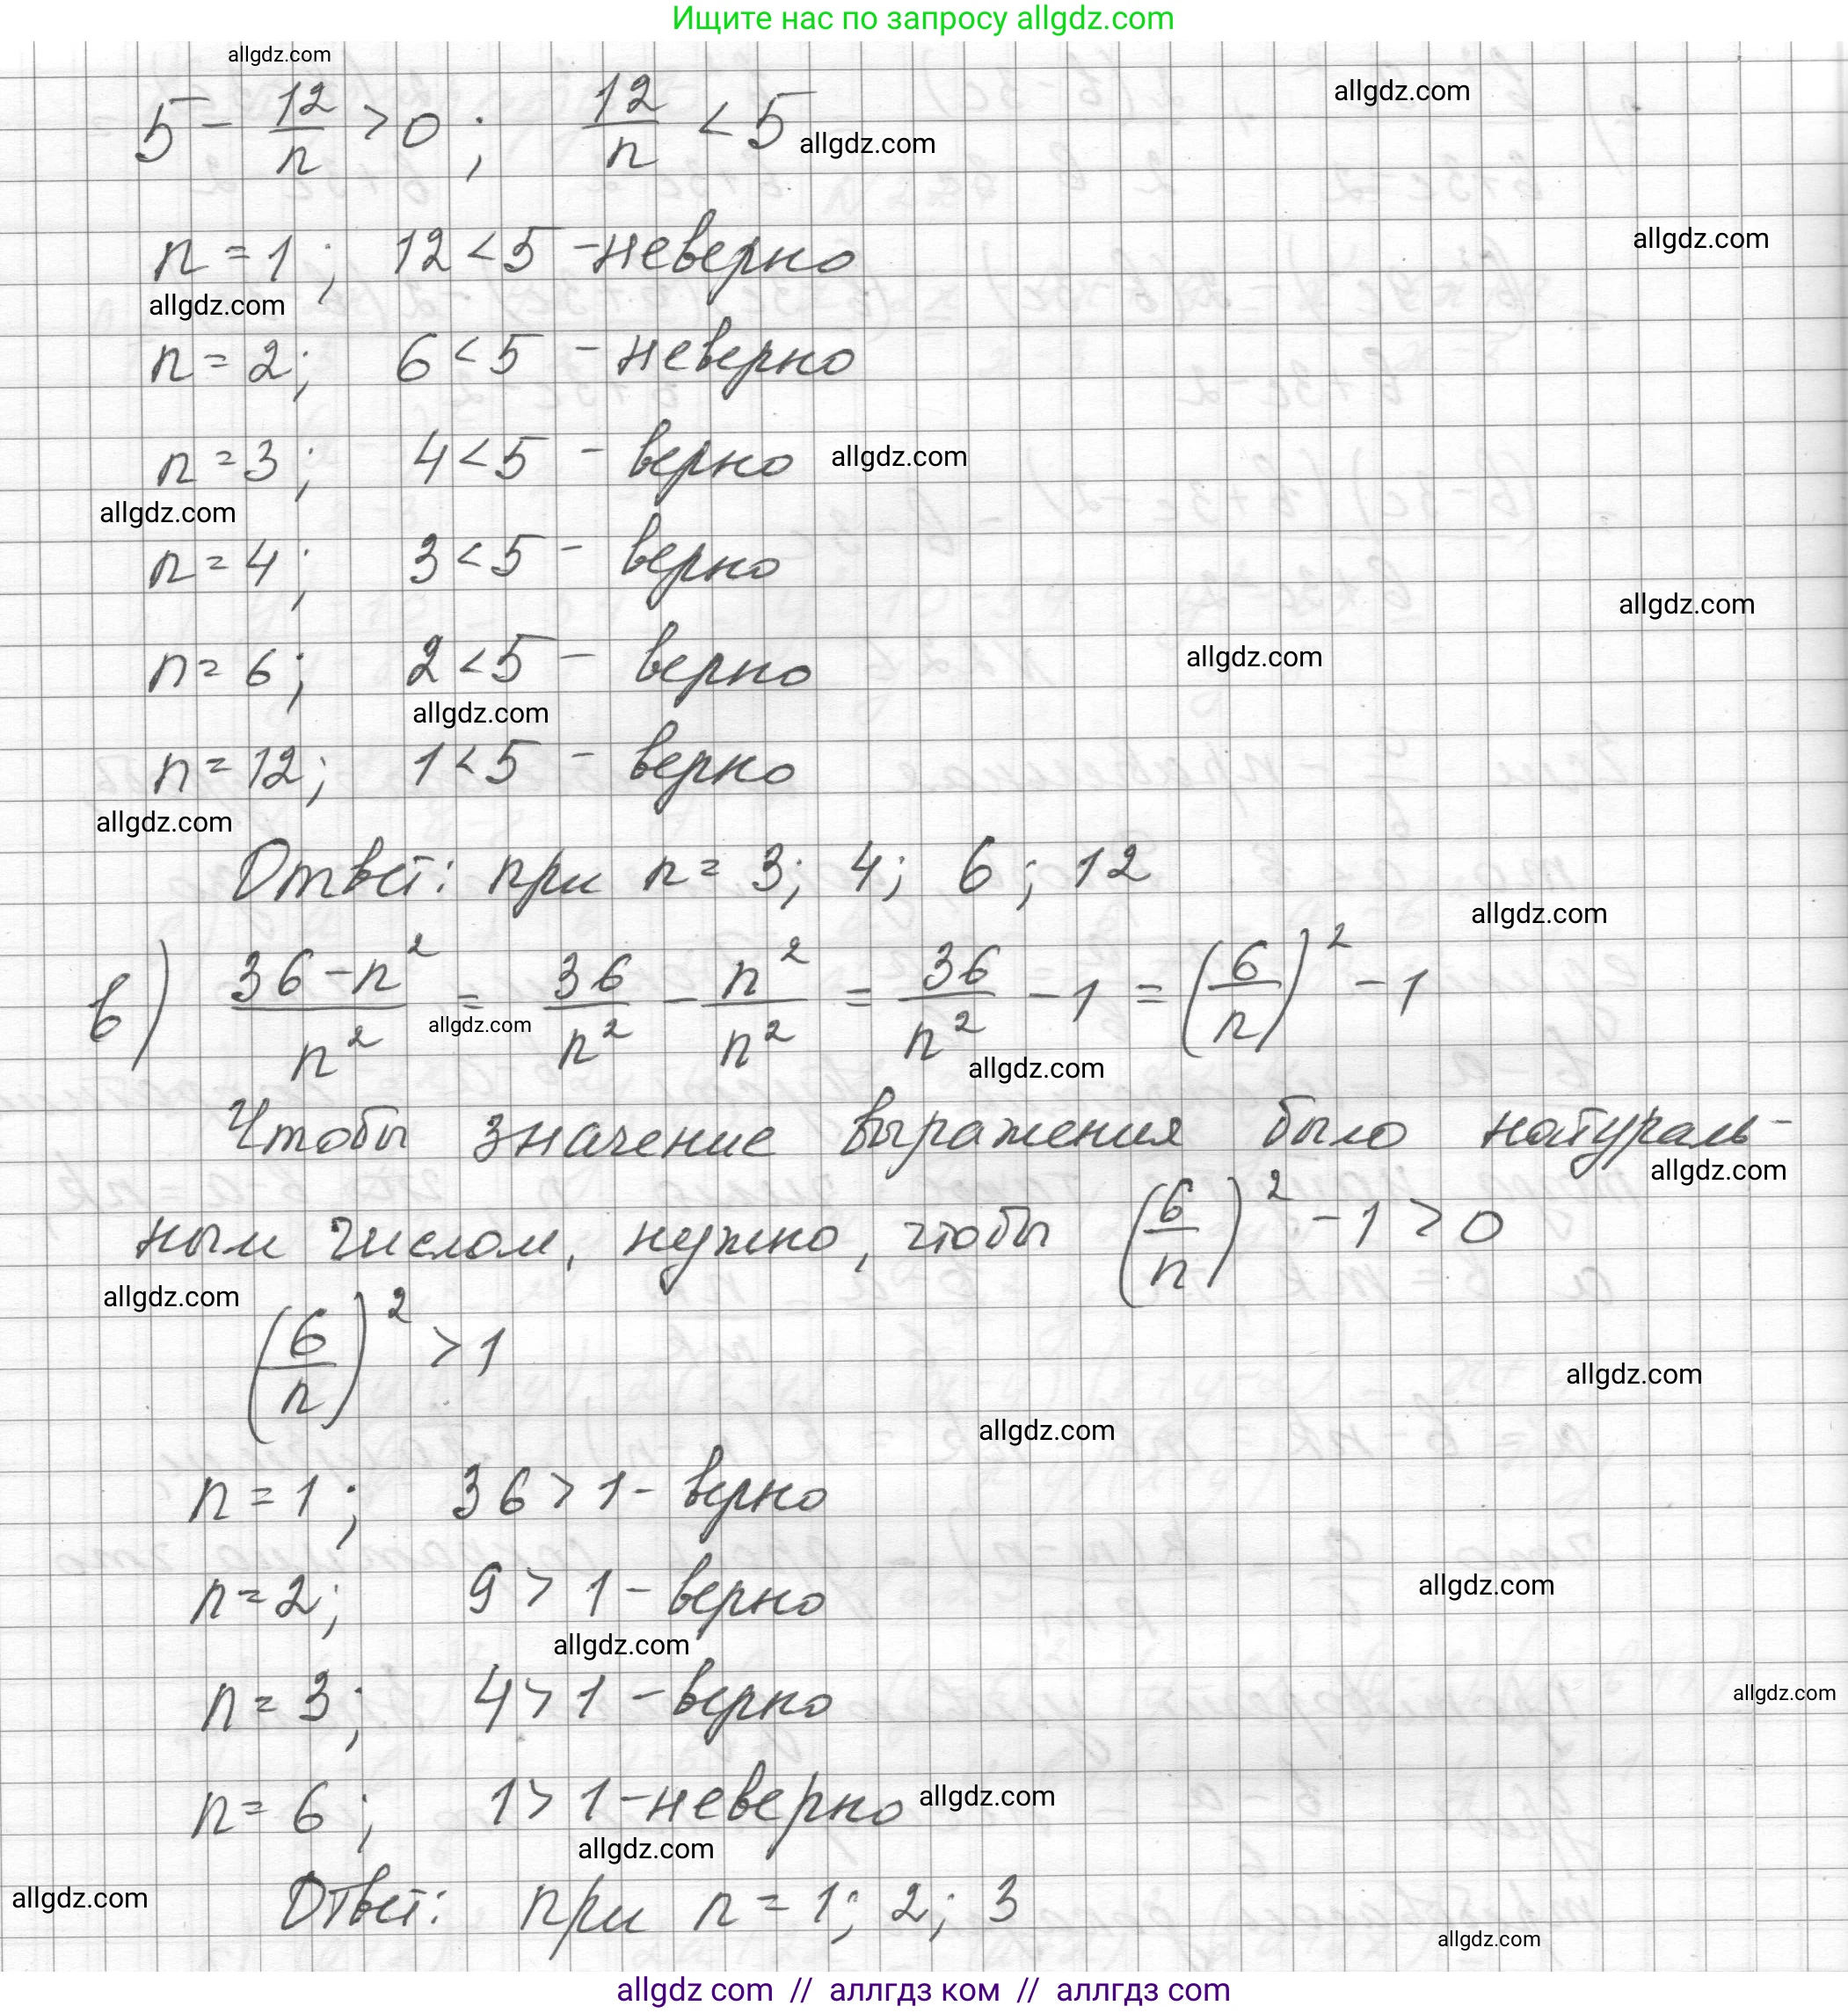 Ищите нас по запросу allgdz.com
allgdz.com
5 - 12/n > 0 ; 12/n < 5
allgdz.com
allgdz.com
n = 1 ; 12 < 5 - неверно
allgdz.com
allgdz.com
n = 2; 6 < 5 - неверно
n = 3 ; 4 < 5 - верно
allgdz.com
allgdz.com
n = 4 ; 3 < 5 - верно
allgdz.com
n = 6 ; 2 < 5 - верно
allgdz.com
allgdz.com
n = 12 ; 1 < 5 - верно
allgdz.com
Ответ: при n = 3; 4; 6 ; 12
allgdz.com
в) (36 - n²)/n² = 36/n² - n²/n² = 36/n² - 1 = (6/n)² - 1
allgdz.com
allgdz.com
Чтобы значение выражения было натураль-
allgdz.com
ным числом, нужно, чтобы (6/n)² - 1 > 0
allgdz.com
(6/n)² > 1
allgdz.com
allgdz.com
n = 1 ; 36 > 1 - верно
n = 2; 9 > 1 - верно
allgdz.com
allgdz.com
n = 3 ; 4 > 1 - верно
allgdz.com
n = 6 ; 1 > 1 - неверно
allgdz.com
allgdz.com
allgdz.com
Ответ: при n = 1; 2; 3
allgdz.com
allgdz com // аллгдз ком // аллгдз com